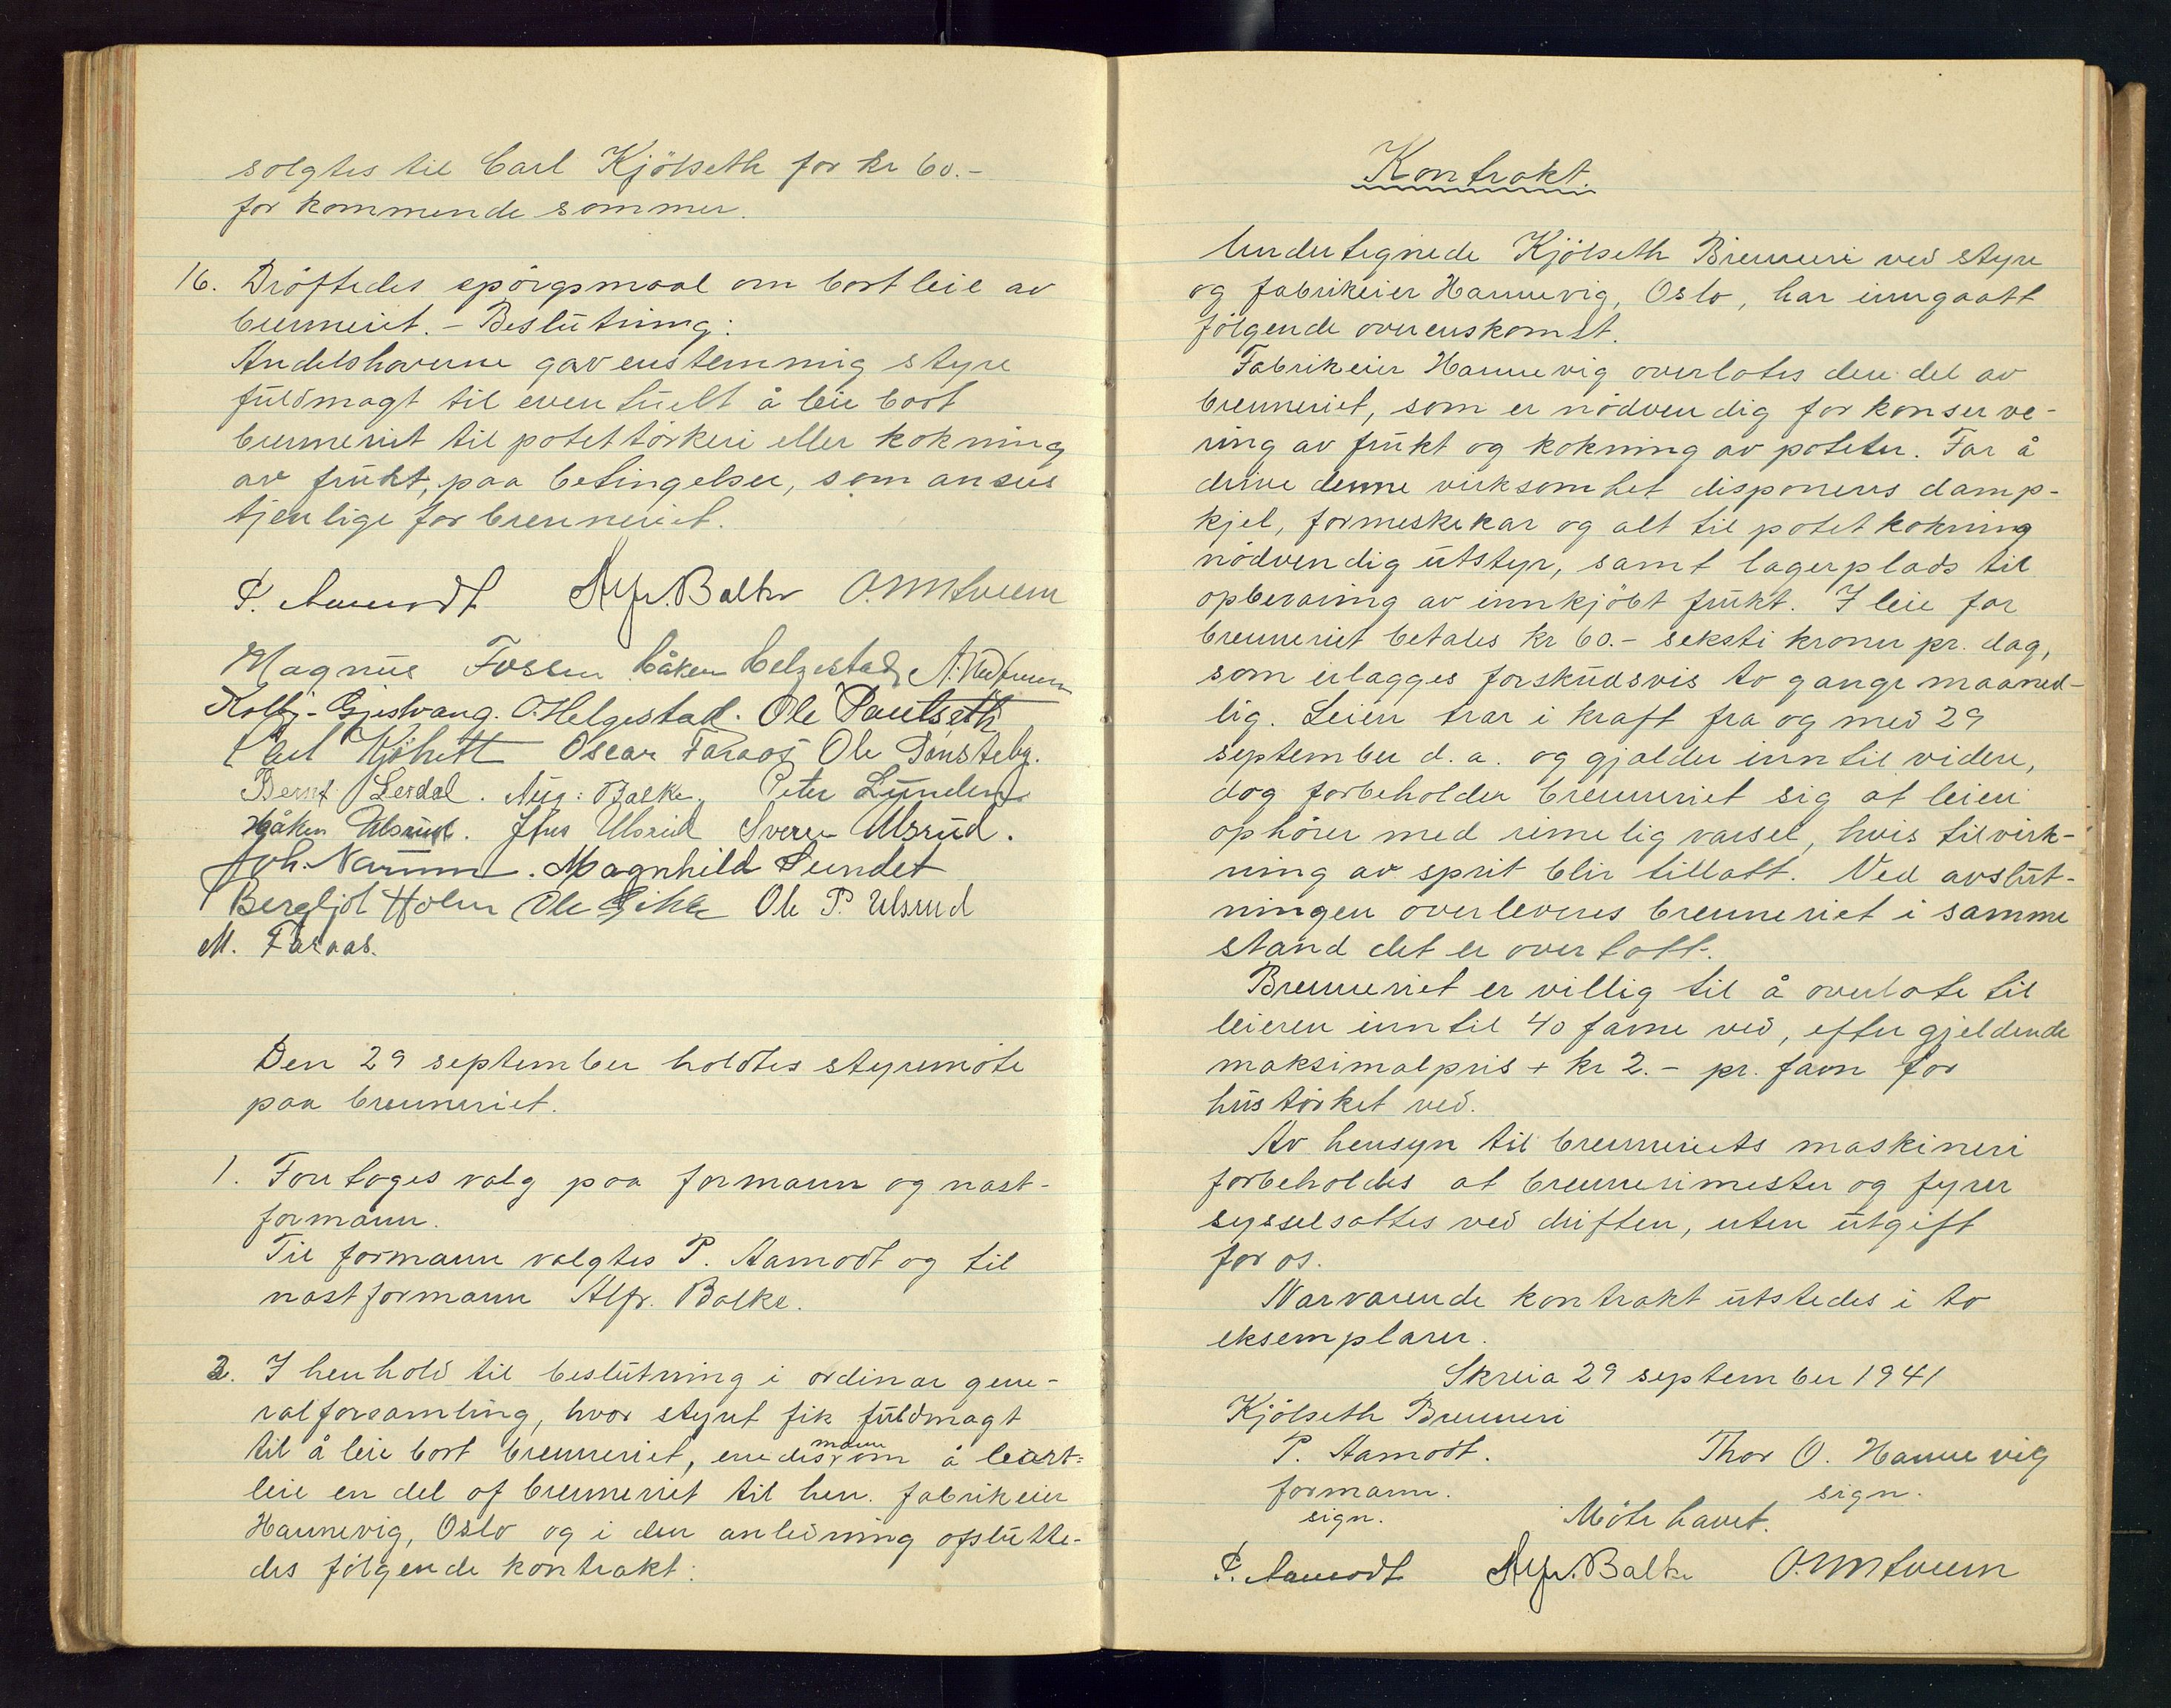 solgtes til Carl Kjölseth for kr 60.-
for kommende sommer.
16. Dröftedes spörgsmaal om bortleie av
brenneriet. - Beslutning:
Andelshaverne gav enstemmig styre
fuldmagt til eventuelt å leie bort
brenneriet til potettörkeri eller kokning
av frukt, paa betingelser, som ansees
tjenlige for brenneriet.
P. Aamodt Alfr. Balke
Magnus Fossen Håken Helgestad
Kolbj. Gjestvang. O. Helgestad. Ole Paulseth
Carl Kjölseth Oscar Faraas Ole Tønsteby.
Bernt Lerdal. Aug: Balke. Peter Lunden
Håken Ulsrud. Jhs Ulsrud Sverre Ulsrud.
Joh. Narum. Magnhild Sundet
Bergljot Holm Ole Gihle Ole P. Ulsrud
M. Faraas.
Den 29 september holdtes styremöte
paa brenneriet.
1. Foretoges valg paa formann og næst-
formann.
Til formann valgtes P. Aamodt og til
næstformann Alfr. Balke.
2. I henhold til beslutning i ordinær gene-
ralforsamling, hvor styret fik fuldmagt
til å leie bort brenneriet, enedes mann om å bort-
leie en del af brenneriet til herr. fabrikeier
Hannevig, Oslo og i den anledning afslutte-
des følgende kontrakt:
Kontrakt.
Undertegnede Kjölseth Brenneri ved styre
og fabrikeier Hannevig, Oslo, har inngaatt
fölgende overenskomst.
Fabrikeier Hannevig overlates den del av
brenneriet, som er nödvendig for konserve-
ring av frukt og kokning av poteter. For å
drive denne virksomhet disponeres damp-
kjel, formeskekar og alt til potetkokning
nödvendig utstyr, samt lagerplads til
opbevaring av innkjöbt frukt. I leie for
brenneriet betales kr 60.- seksti kroner pr. dag,
som erlægges forskudsvis to gange maaned-
lig. Leien trær i kraft fra og med 29
september d.a. og gjælder inntil videre,
dog forbeholder brenneriet sig at leien
ophörer med rimelig varsel, hvis tilvirk-
ning av sprit blir tillatt. Ved avslut-
ningen overleveres brenneriet i samme
stand det er overtatt.
Brenneriet er villig til å overlate til
leieren inntil 40 favne ved, efter gjeldende
maksimalpris + kr 2.- pr. favn for
hustörket ved.
Av hensyn til brenneriets maskineri
forbeholdes at brennerimester og fyrer
sysselsættes ved driften, uten utgift
for os.
Nærværende kontrakt utstedes i to
eksemplarer.
Skreia 29 september 1941
Kjölseth Brenneri
P. Aamodt. Thor O. Hannevig
formann. sign.
sign. Möte hævet.
P. Aamodt Alfr. Balke